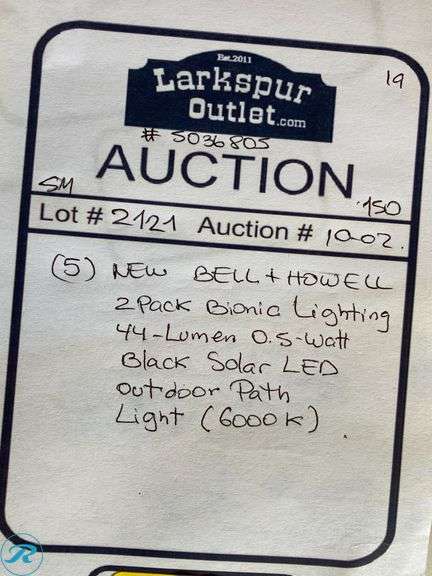 Est.2011
19
Larkspur
Outlet.com
# 5036805
AUCTION
SM
150
Lot # 2121 Auction # 10-02.
(5) NEW BELL + HOWELL
2Pack Bionic Lighting
44-Lumen 0.5-Watt
Black Solar LED
Outdoor Path
Light (6000K)
R